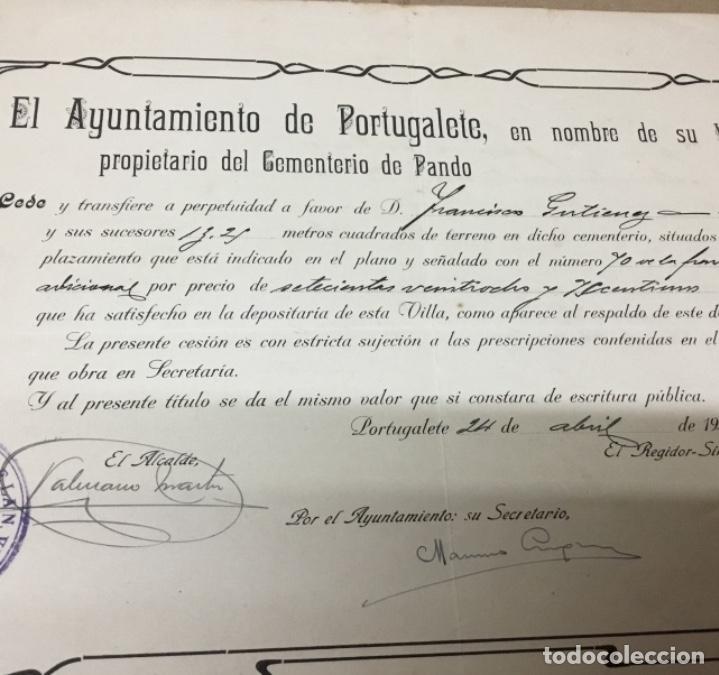 El Ayuntamiento de Portugalete, en nombre de su
propietario del Cementerio de Pando
Cede y transfiere a perpetuidad a favor de D. Francisco Gutierrez
y sus sucesores metros cuadrados de terreno en dicho cementerio, situados
plazamiento que está indicado en el plano y señalado con el número 70 de la
adicional por precio de setecientas veintiocho y 75 centimos
que ha satisfecho en la depositaría de esta Villa, como aparece al respaldo de este do
La presente cesión es con estricta sujeción a las prescripciones contenidas en el
que obra en Secretaría.
Y al presente título se da el mismo valor que si constara de escritura pública.
Portugalete 24 de abril de 19
El Alcalde, El Regidor-Sín
Por el Ayuntamiento: su Secretario,
todocoleccion